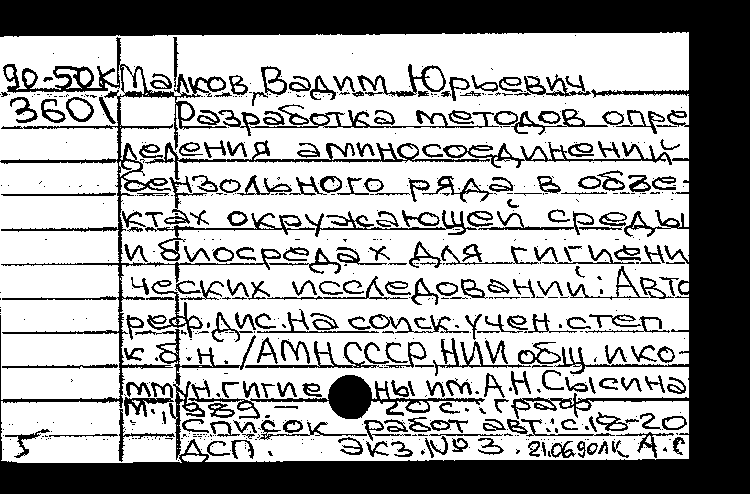 90-50К Малков, Вадим Юрьевич.
3601 Разработка методов опре
деления аминосоединений
бензольного ряда в объе-
ктах окружающей среды
и биосредах для гигиени
ческих исследований: Авто
реф.дис.на соиск.учен.степ
к.б.н. /АМН СССР, НИИ общ. и ко-
ммун.гигиены им.А.Н.Сысина
М., 1989. – 20 с.: граф
Список работ авт.: с.18-20
5 ДСП. Экз.№ 3. 21.06.90 А.С